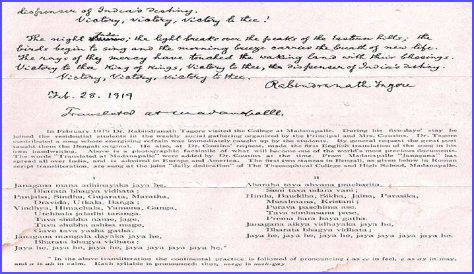 dispenser of India's destiny.
Victory, Victory, Victory to thee!
The night the light breaks over the peaks of the Eastern hills; the
birds begin to sing and the morning breeze carries the breath of new life.
The rays of thy mercy have touched the waking land with their blessings.
Victory to the King of Kings, Victory to thee, the dispenser of India's destiny.
Victory, Victory, Victory to thee.
Rabindranath Tagore
Feb. 28. 1919
Translated at Madanapalle
In February 1919 Dr. Rabindranath Tagore visited the College at Madanapalle. During his five-days' stay he
joined the residential students in the weekly social gathering organised by the Principal and Mrs. Cousins. Dr. Tagore
contributed a song whose energising refrain was immediately caught up by the students. By general request the great poet
taught them the Bengali original. He also, at Dr. Cousins' request, made the first English translation of the song in his
own handwriting. The above is a photographic facsimile of what has become one of the world's most precious documents.
The words "Translated at Madanapalle" were added by Dr. Cousins at the time. From Madanapalle "Janagana" has
spread all over India, and is admired in Europe and America. The first two stanzas in Bengali, as given below in Roman
script transliteration, are sung as the joint "daily dedication" of The Theosophical College and High School, Madanapalle.
I
Janagana mana adhinayaka jaya he,
Bharata bhagya vidhata;
Punjaba, Sindhu, Gujarata, Maratha,
Dravida, Utkala, Banga;
Vindhya, Himachala, Yamuna, Ganga,
Uchhala jaladhi taranga.
Tava shubha name, jage,
Tava shubha ashisa mage,
Gahe tava jaya gatha.
Janagana mangala dayaka jaya he,
Bharata bhagya vidhata;
Jaya he, jaya he, jaya he, jaya jaya jaya jaya he.
II
Aharaha tava ahvana pracharita,
Suni tava udara vani;
Hindu, Bauddha, Sikha, Jaina, Parasika,
Musalmana, Kristani;
Purava paschima ase,
Tava simhasana pase,
Prema hara haya gatha.
Janagana aikya vidhayaka jaya he,
Bharata bhagya vidhata;
Jaya he, jaya he, jaya he, jaya jaya jaya jaya he.
In the above transliteration the continental practice is followed of pronouncing i as ee in feel, e as ay in may,
and a as ah in calm. Each syllable is pronounced: thus, mage is mah-gay